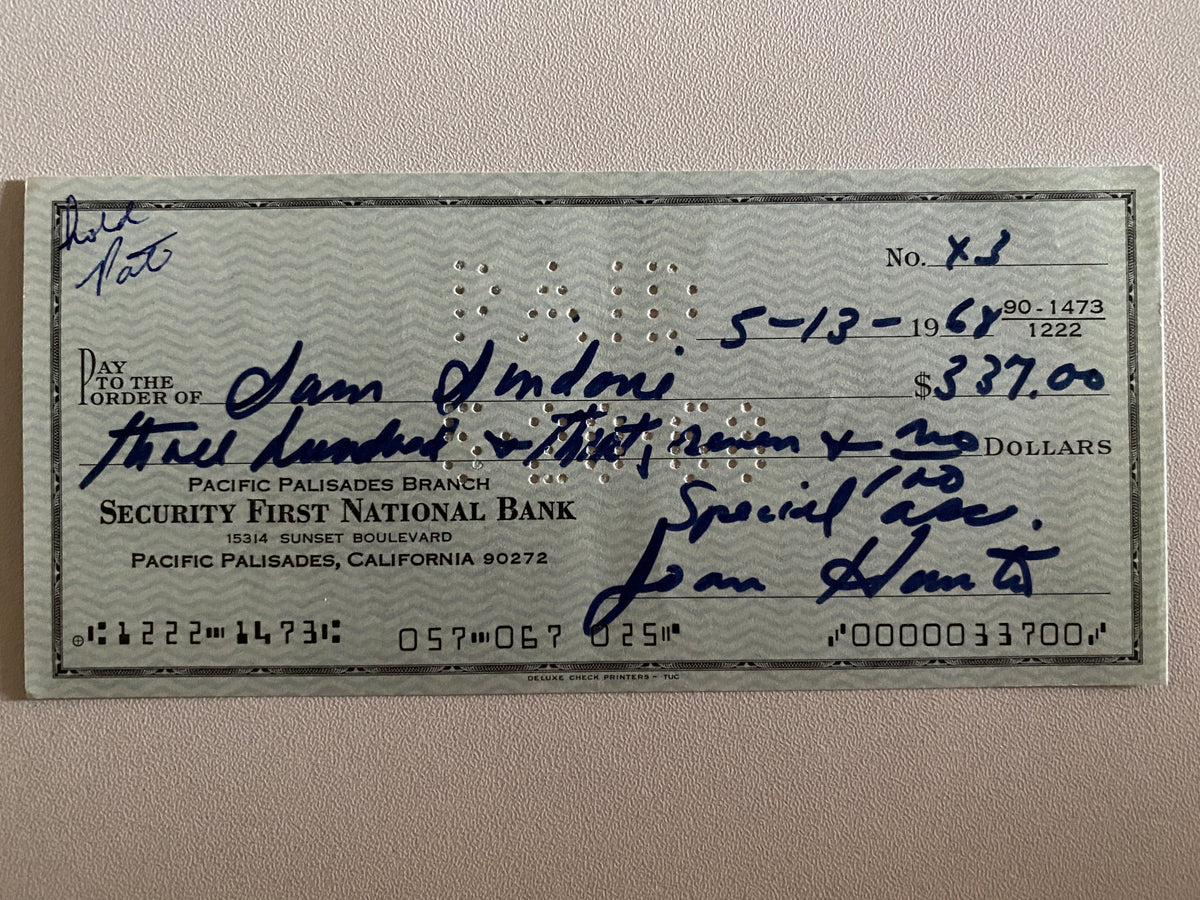 hold
Pat
No. X3
PAID
5-13-1968 90-1473
1222
PAY TO THE ORDER OF Sam
$337.00
three hundred + Thirty seven + no/100 DOLLARS
PACIFIC PALISADES BRANCH
SECURITY FIRST NATIONAL BANK
15314 SUNSET BOULEVARD
PACIFIC PALISADES, CALIFORNIA 90272
Special acc.
Joan
1222 1473
057 067 025
0000033700
DELUXE CHECK PRINTERS - TUC